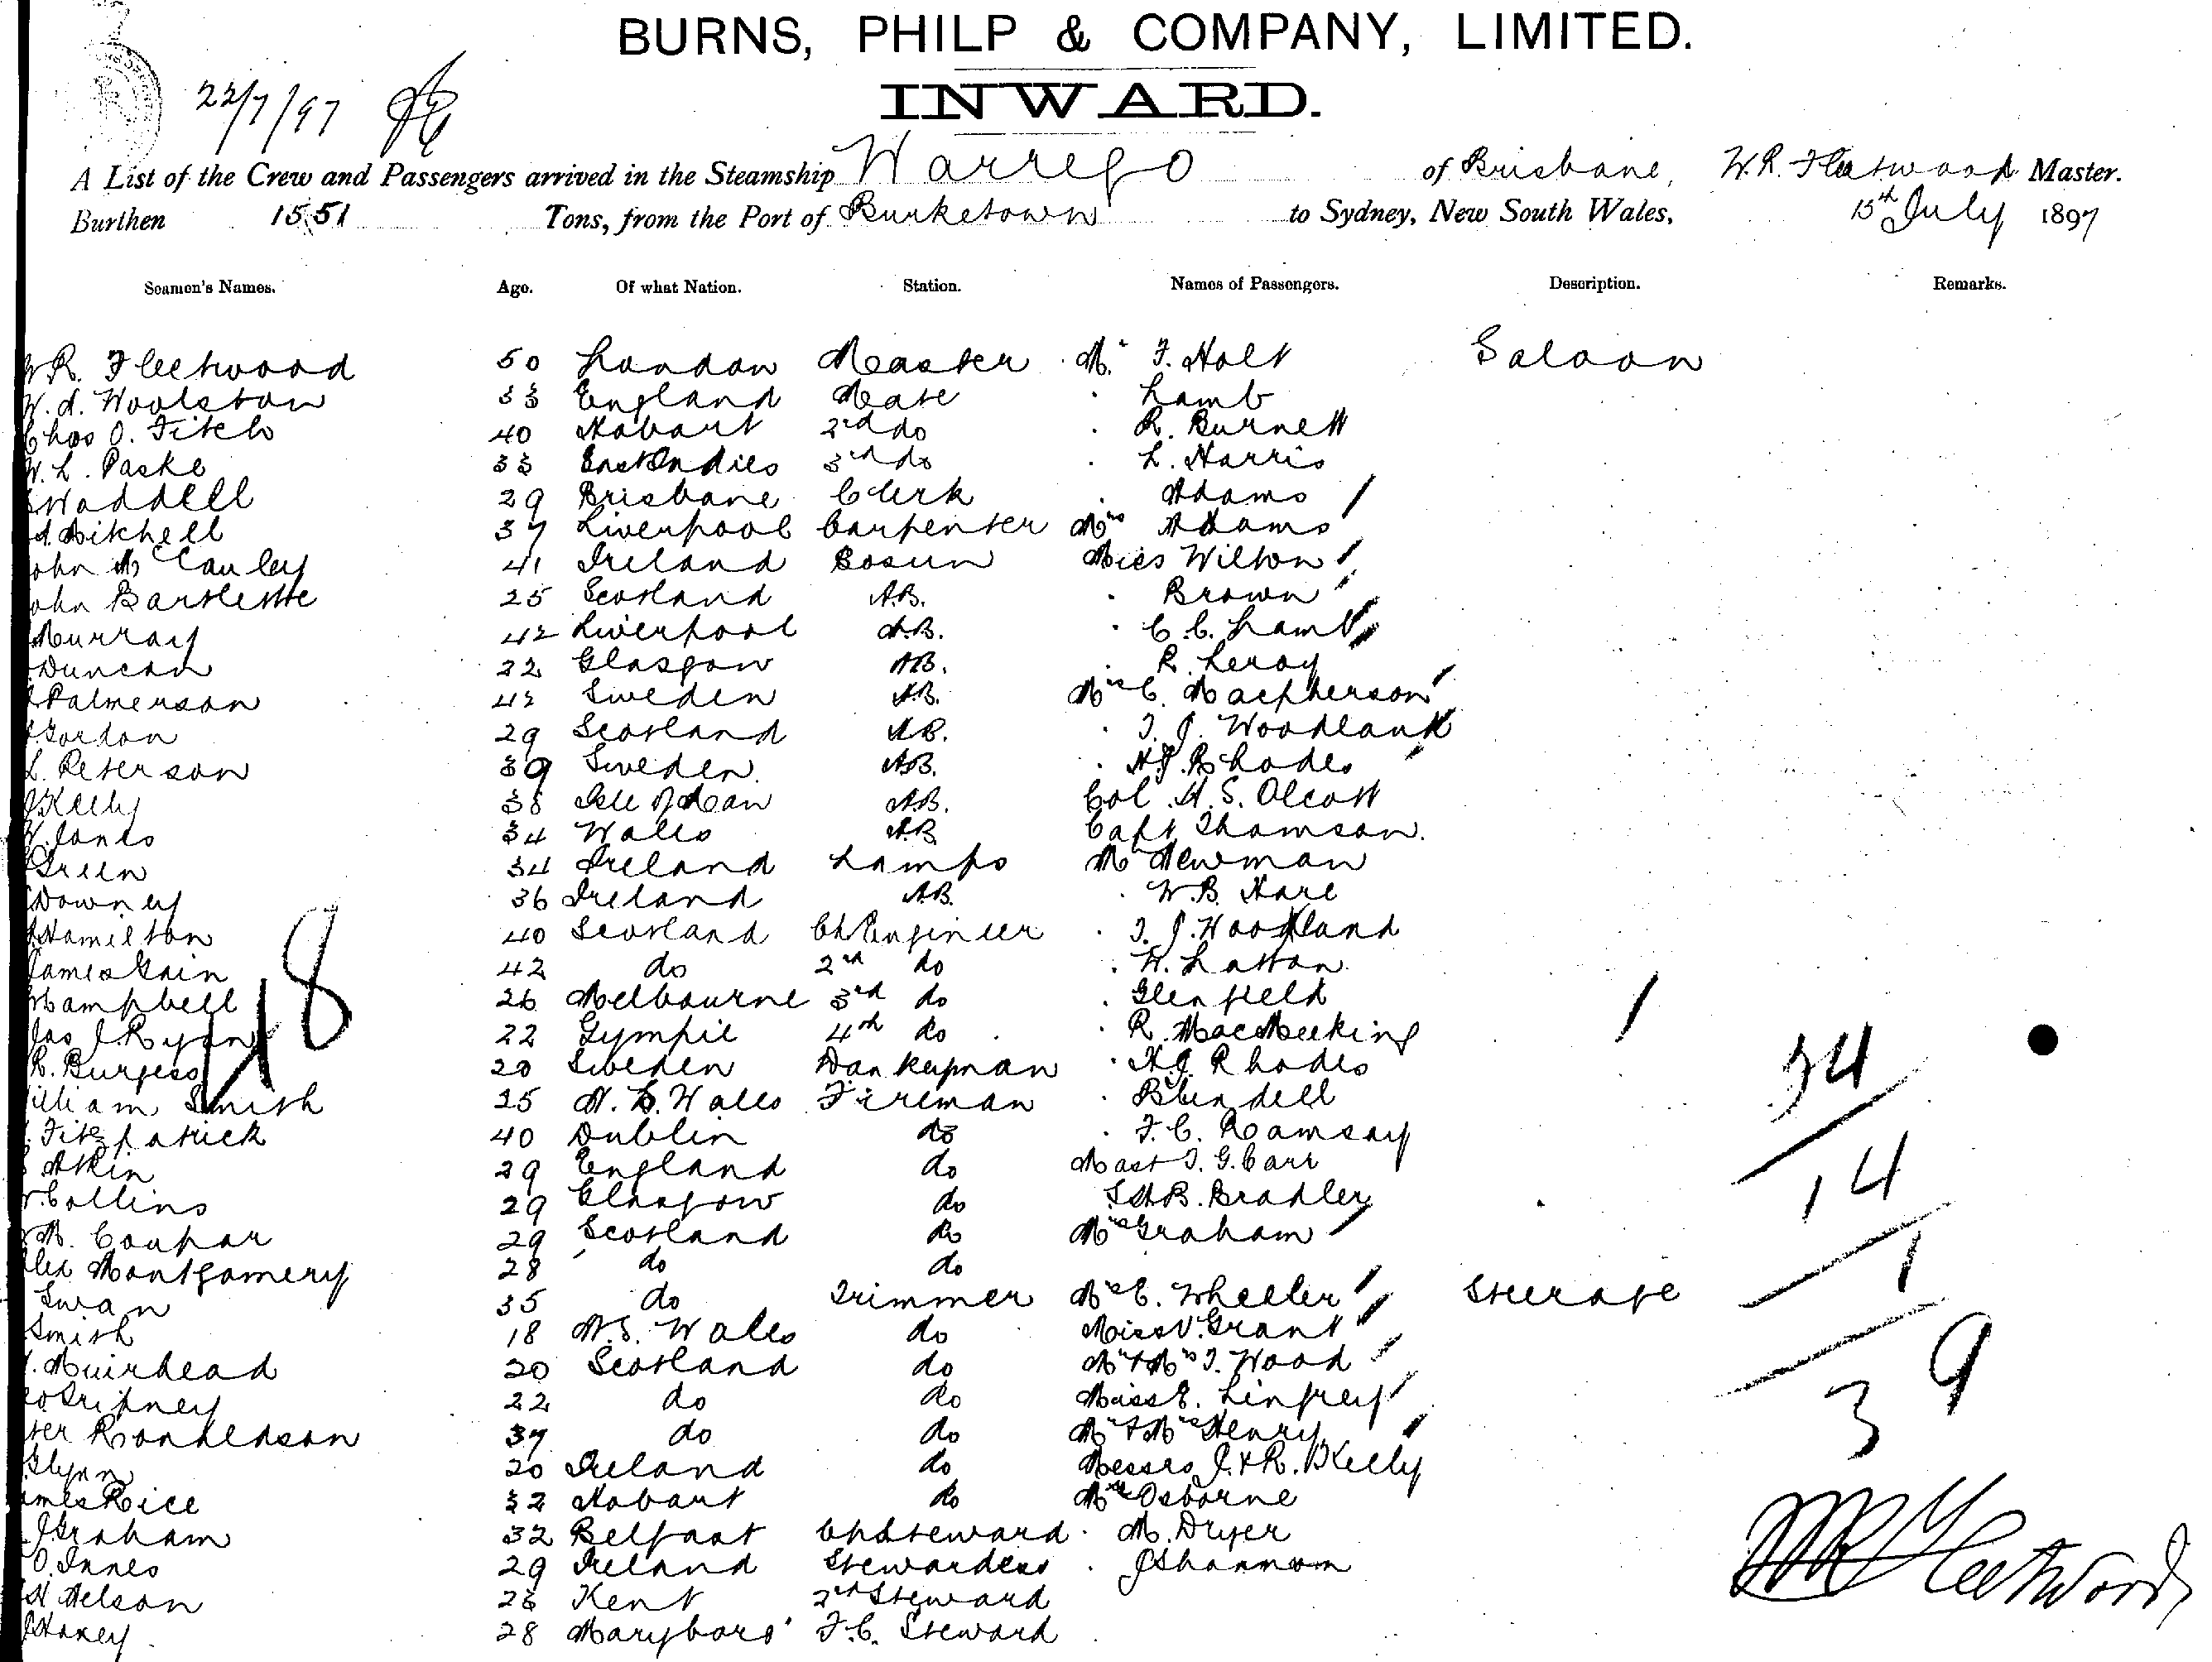 BURNS, PHILP & COMPANY, LIMITED.
INWARD.
22/7/97
A List of the Crew and Passengers arrived in the Steamship Warrego of Brisbane, W.R. Fleetwood Master.
Burthen 1551 Tons, from the Port of Burketown to Sydney, New South Wales, 15th July 1897
Seamen's Names. Age. Of what Nation. Station. Names of Passengers. Description. Remarks.
R. Fleetwood 50 London Master Mr F. Holt Saloon
W.d. Woolston 33 England Mate Lamb
Chas O. Fitch 40 Hobart 2nd do R. Burnett
W. L. Paske 33 East Indies 3rd do L. Harris
Waddell 29 Brisbane Clerk Adams
Mitchell 37 Liverpool Carpenter Mrs Adams
ohn McCauley 41 Ireland Bosun Miss Wilton
ohn Bartlette 25 Scotland A.B. Brown
Murray 42 Liverpool A.B. C.C. Lamb
Duncan 22 Glasgow A.B. R. Leroy
Palmerson 42 Sweden A.B. Mrs C. Macpherson
Gordon 29 Scotland A.B. T. J. Woodland
L. Peterson 39 Sweden A.B. H.J. Rhodes
Kelly 38 Isle of Man A.B. Col. H. S. Olcott
W. Jones 34 Wales A.B. Capt Thomson.
Green 34 Ireland Lamps Mr Newman
Downey 36 Ireland A.B. W.B. Hare
Hamilton 40 Scotland Ch Engineer T. J. Woodland
James Gain 42 do 2nd do W. Latton.
Campbell 26 Melbourne 3rd do Glenfield
Jas J. Ryan 22 Gympie 4th do R. MacMeeking
R. Burgess 20 Sweden Donkeyman H.J. Rhodes
illiam Smith 25 N. S. Wales Fireman Blundell
Fitzpatrick 40 Dublin do F. C. Ramsay
Atkin 29 England do Mast T. G. Carr
Collins 29 Glasgow do Bradley
M. Coupar 29 Scotland do Mrs Graham
lex Montgomery 28 do do
Swan 35 do Trimmer Mrs C. Wheeler Steerage
Smith 18 N.S. Wales do Miss V. Grant
Muirhead 20 Scotland do Mr & Mrs T. Wood
Tripney 22 do do Miss E. Linfrey
ter Ronaldson 37 do do Mr & Mrs Henry
Glynn 20 Ireland do Messrs J. & R. Kelly
ames Rice 32 Hobart do Osborne
J Graham 32 Belfast Ch Steward M. Dryer
O. Innes 29 Ireland Stewardess J Shannon
H Nelson 26 Kent 2nd Steward
Haxey 28 Maryboro' F.C. Steward
18
34
14
1
9
3
WR Fleetwood